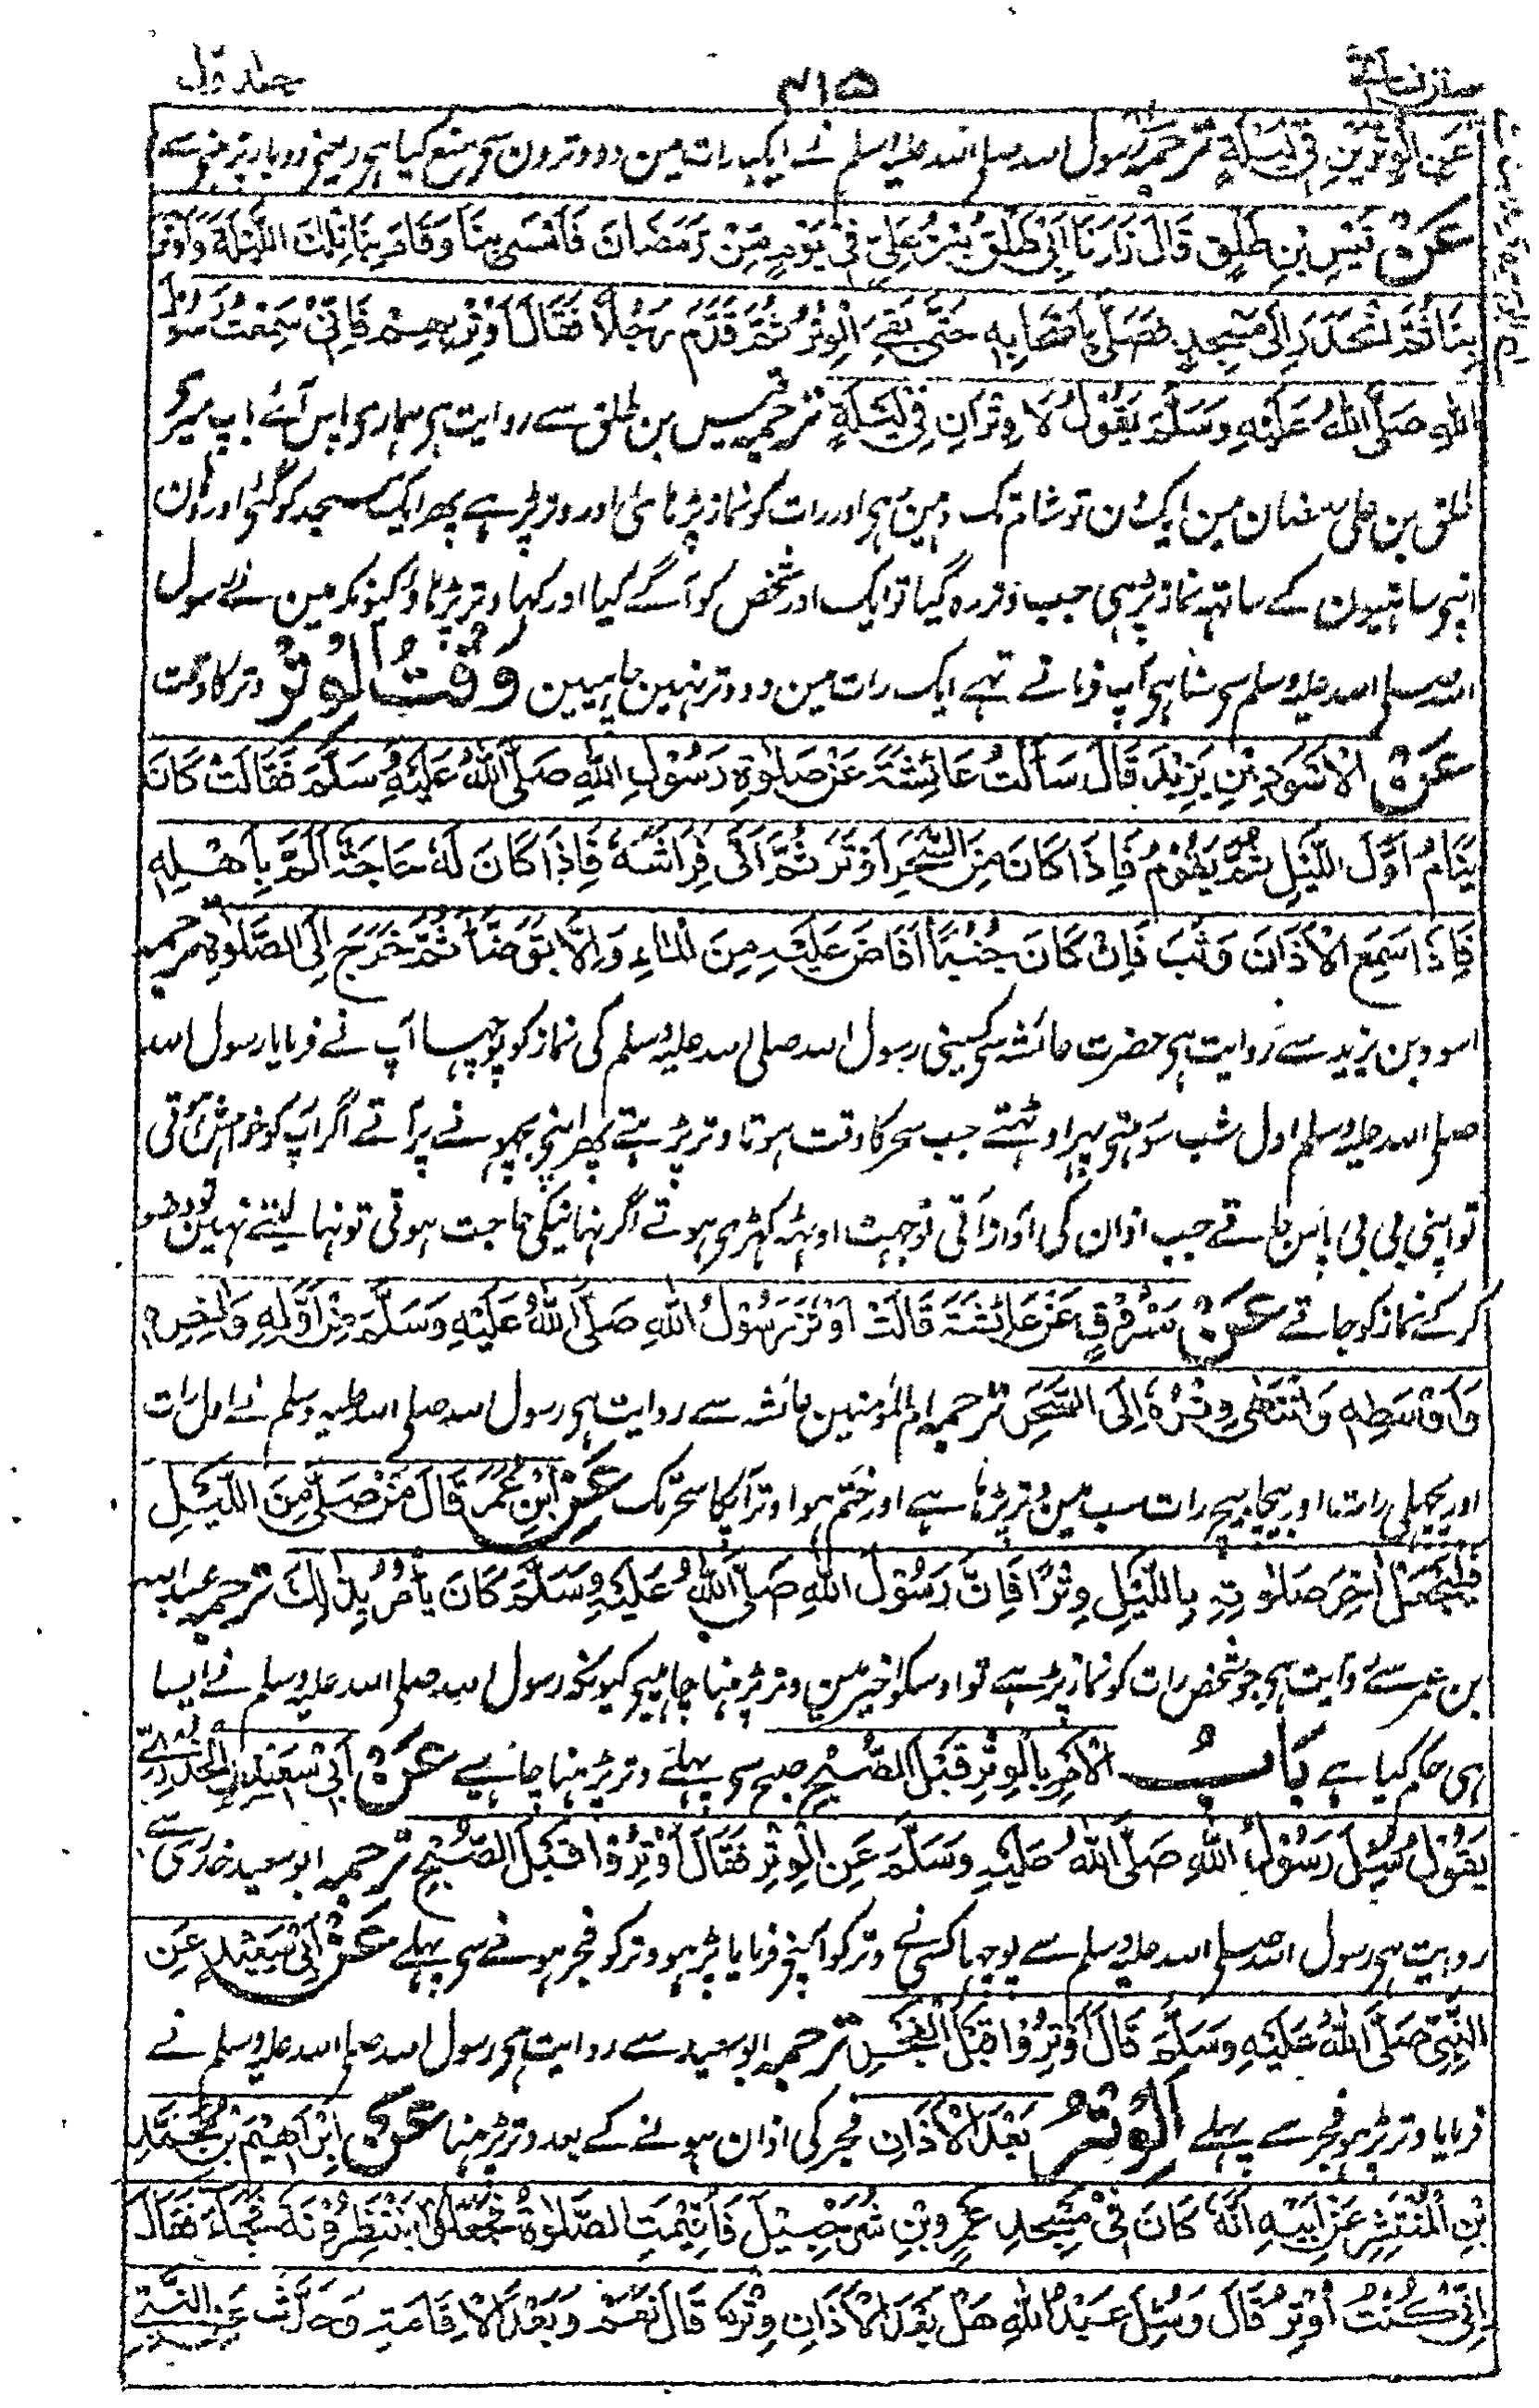 سنن نسائی ۴۱۵ جلد اول
عَنِ الْوِتْرَيْنِ فِي لَيْلَةٍ ترجمہ رسول اللہ صلی اللہ علیہ وسلم نے ایک رات مین دو وترون سے منع کیا ہی یعنی دوبار پڑہنی سے
عَنْ قَيْسِ بْنِ طَلْقٍ قَالَ زَارَنَا أَبِي طَلْقُ بْنُ عَلِيٍّ فِي يَوْمٍ مِنْ رَمَضَانَ فَأَمْسَى بِنَا وَقَامَ بِنَا تِلْكَ اللَّيْلَةَ وَأَوْتَرَ
بِنَا ثُمَّ انْحَدَرَ إِلَى مَسْجِدٍ فَصَلَّى بِأَصْحَابِهِ حَتَّى بَقِيَ الْوِتْرُ ثُمَّ قَدَّمَ رَجُلًا فَقَالَ أَوْتِرْ بِهِمْ فَإِنِّي سَمِعْتُ رَسُولَ
اللهِ صَلَّى اللهُ عَلَيْهِ وَسَلَّمَ يَقُولُ لَا وِتْرَانِ فِي لَيْلَةٍ ترجمہ قیس بن طلق سے روایت ہی ہماری پاس آئے باپ میرے
طلق بن علی رمضان مین ایک دن تو شام تک وہین رہی اور رات کو نماز پڑہائی اور وتر پڑہے پھر ایک مسجد کو گئی اور وہان
اپنی ساتہیون کے ساتہہ نماز پڑہی جب وتر رہ گیا تو ایک اور شخص کو آگے کیا اور کہا وتر پڑہاؤ کیونکہ مین نے رسول
اللہ صلی اللہ علیہ وسلم سی سنا ہی آپ فرماتے تہے ایک رات مین دو وتر نہین چاہیین وَقْتُ الْوِتْرِ وتر کا وقت
عَنْ الْأَسْوَدِ بْنِ يَزِيدَ قَالَ سَأَلْتُ عَائِشَةَ عَنْ صَلٰوةِ رَسُولِ اللهِ صَلَّى اللهُ عَلَيْهِ وَسَلَّمَ فَقَالَتْ كَانَ
يَنَامُ أَوَّلَ اللَّيْلِ ثُمَّ يَقُومُ فَإِذَا كَانَ مِنَ السَّحَرِ أَوْتَرَ ثُمَّ أَتَى فِرَاشَهُ فَإِذَا كَانَ لَهُ حَاجَةٌ أَلَمَّ بِأَهْلِهِ
فَإِذَا سَمِعَ الْأَذَانَ وَثَبَ فَإِنْ كَانَ جُنُبًا أَفَاضَ عَلَيْهِ مِنَ الْمَاءِ وَإِلَّا تَوَضَّأَ ثُمَّ خَرَجَ إِلَى الصَّلٰوةِ ترجمہ
اسود بن یزید سے روایت ہی حضرت عائشہ سی مینی رسول اللہ صلی اللہ علیہ وسلم کی نماز کو پوچہا آپ نے فرمایا رسول اللہ
صلی اللہ علیہ وسلم اول شب سوتی پہر اوٹہتے جب سحر کا وقت ہوتا وتر پڑہتے پھر اپنی بچہونے پر آتے اگر آپ کو خواہش آتی
تو اپنی بی بی پاس جاتے جب اذان کی آواز آتی تو جہٹ اوٹہہ کہڑی ہوتے اگر نہانیکی حاجت ہوتی تو نہا لیتے نہین تو وضو
کرکے نماز کو جاتے عَنْ مَسْرُوقٍ عَنْ عَائِشَةَ قَالَتْ أَوْتَرَ رَسُولُ اللهِ صَلَّى اللهُ عَلَيْهِ وَسَلَّمَ مِنْ أَوَّلِهِ وَآخِرِهِ
وَأَوْسَطِهِ وَانْتَهَى وِتْرُهُ إِلَى السَّحَرِ ترجمہ ام المؤمنین عائشہ سے روایت ہی رسول اللہ صلی اللہ علیہ وسلم نے اول رات
اور پچہلی رات اور بیچا بیچ رات سب مین وتر پڑہا ہے اور ختم ہوا وتر آپکا سحر تک عَنْ ابْنِ عُمَرَ قَالَ مَنْ صَلَّى مِنَ اللَّيْلِ
فَلْيَجْعَلْ آخِرَ صَلٰوتِهِ بِاللَّيْلِ وِتْرًا فَإِنَّ رَسُولَ اللهِ صَلَّى اللهُ عَلَيْهِ وَسَلَّمَ كَانَ يَأْمُرُ بِذٰلِكَ ترجمہ عبداللہ
بن عمر سے روایت ہی جو شخص رات کو نماز پڑہے تو اوسکو اخیر مین وتر پڑہنا چاہیی کیونکہ رسول اللہ صلی اللہ علیہ وسلم نے ایسا
ہی حکم کیا ہے بَابُ الْأَمْرِ بِالْوِتْرِ قَبْلَ الصُّبْحِ صبح سی پہلے وتر پڑہنا چاہیے عَنْ أَبِي سَعِيدٍ الْخُدْرِيِّ
يَقُولُ سُئِلَ رَسُولُ اللهِ صَلَّى اللهُ عَلَيْهِ وَسَلَّمَ عَنِ الْوِتْرِ فَقَالَ أَوْتِرُوا قَبْلَ الصُّبْحِ ترجمہ ابو سعید خدری سے
روایت ہی رسول اللہ صلی اللہ علیہ وسلم سے پوچہا کسی نے وتر کو آپنے فرمایا پڑہو وتر کو فجر ہونے سی پہلے عَنْ أَبِي سَعِيدٍ عَنِ
النَّبِيِّ صَلَّى اللهُ عَلَيْهِ وَسَلَّمَ قَالَ أَوْتِرُوا قَبْلَ الْفَجْرِ ترجمہ ابو سعید سے روایت ہی رسول اللہ صلی اللہ علیہ وسلم نے
فرمایا وتر پڑہو فجر سے پہلے اَلْوِتْرُ بَعْدَ الْأَذَانِ فجر کی اذان ہونے کے بعد وتر پڑہنا عَنْ إِبْرَاهِيمَ بْنِ مُحَمَّدِ
بْنِ الْمُنْتَشِرِ عَنْ أَبِيهِ أَنَّهُ كَانَ فِي مَسْجِدِ عَمْرِو بْنِ شُرَحْبِيلَ فَأُقِيمَتِ الصَّلٰوةُ فَجَعَلُوا يَنْتَظِرُونَهُ فَجَاءَ فَقَالَ
إِنِّي كُنْتُ أُوتِرُ قَالَ وَسُئِلَ عَبْدُ اللهِ هَلْ بَعْدَ الْأَذَانِ وِتْرٌ قَالَ نَعَمْ وَبَعْدَ الْإِقَامَةِ وَحَدَّثَ عَنِ النَّبِيِّ